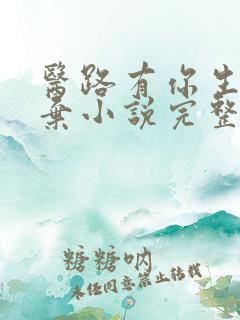 醫路有你生
棄小說完整
糖糖吶
未經同意禁止轉載